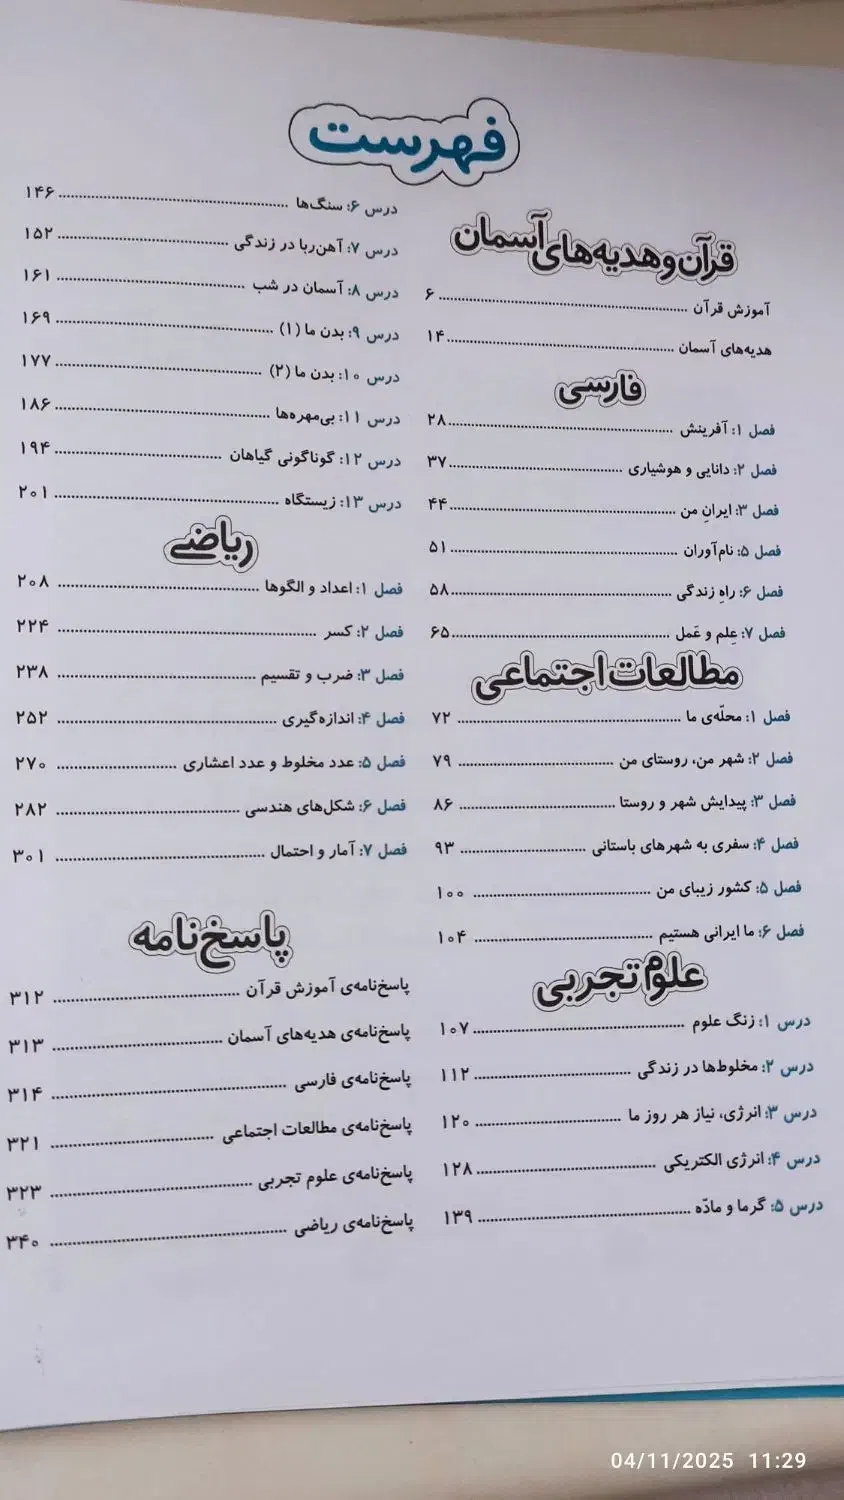 فهرست
قرآن و هدیه‌های آسمان
آموزش قرآن ........ ۶
هدیه‌های آسمان ........ ۱۴
فارسی
فصل ۱: آفرینش ........ ۲۸
فصل ۲: دانایی و هوشیاری ........ ۳۷
فصل ۳: ایرانِ من ........ ۴۴
فصل ۵: نام‌آوران ........ ۵۱
فصل ۶: راهِ زندگی ........ ۵۸
فصل ۷: عِلم و عَمل ........ ۶۵
مطالعات اجتماعی
فصل ۱: محلّه‌ی ما ........ ۷۲
فصل ۲: شهر من، روستای من ........ ۷۹
فصل ۳: پیدایش شهر و روستا ........ ۸۶
فصل ۴: سفری به شهرهای باستانی ........ ۹۳
فصل ۵: کشور زیبای من ........ ۱۰۰
فصل ۶: ما ایرانی هستیم ........ ۱۰۴
علوم تجربی
درس ۱: زنگ علوم ........ ۱۰۷
درس ۲: مخلوط‌ها در زندگی ........ ۱۱۲
درس ۳: انرژی، نیاز هر روز ما ........ ۱۲۰
درس ۴: انرژی الکتریکی ........ ۱۲۸
درس ۵: گرما و مادّه ........ ۱۳۹
درس ۶: سنگ‌ها ........ ۱۴۶
درس ۷: آهن‌ربا در زندگی ........ ۱۵۲
درس ۸: آسمان در شب ........ ۱۶۱
درس ۹: بدن ما (۱) ........ ۱۶۹
درس ۱۰: بدن ما (۲) ........ ۱۷۷
درس ۱۱: بی‌مهره‌ها ........ ۱۸۶
درس ۱۲: گوناگونی گیاهان ........ ۱۹۴
درس ۱۳: زیستگاه ........ ۲۰۱
ریاضی
فصل ۱: اعداد و الگوها ........ ۲۰۸
فصل ۲: کسر ........ ۲۲۴
فصل ۳: ضرب و تقسیم ........ ۲۳۸
فصل ۴: اندازه‌گیری ........ ۲۵۲
فصل ۵: عدد مخلوط و عدد اعشاری ........ ۲۷۰
فصل ۶: شکل‌های هندسی ........ ۲۸۲
فصل ۷: آمار و احتمال ........ ۳۰۱
پاسخ‌نامه
پاسخ‌نامه‌ی آموزش قرآن ........ ۳۱۲
پاسخ‌نامه‌ی هدیه‌های آسمان ........ ۳۱۳
پاسخ‌نامه‌ی فارسی ........ ۳۱۴
پاسخ‌نامه‌ی مطالعات اجتماعی ........ ۳۲۱
پاسخ‌نامه‌ی علوم تجربی ........ ۳۲۳
پاسخ‌نامه‌ی ریاضی ........ ۳۴۰
04/11/2025 11:29